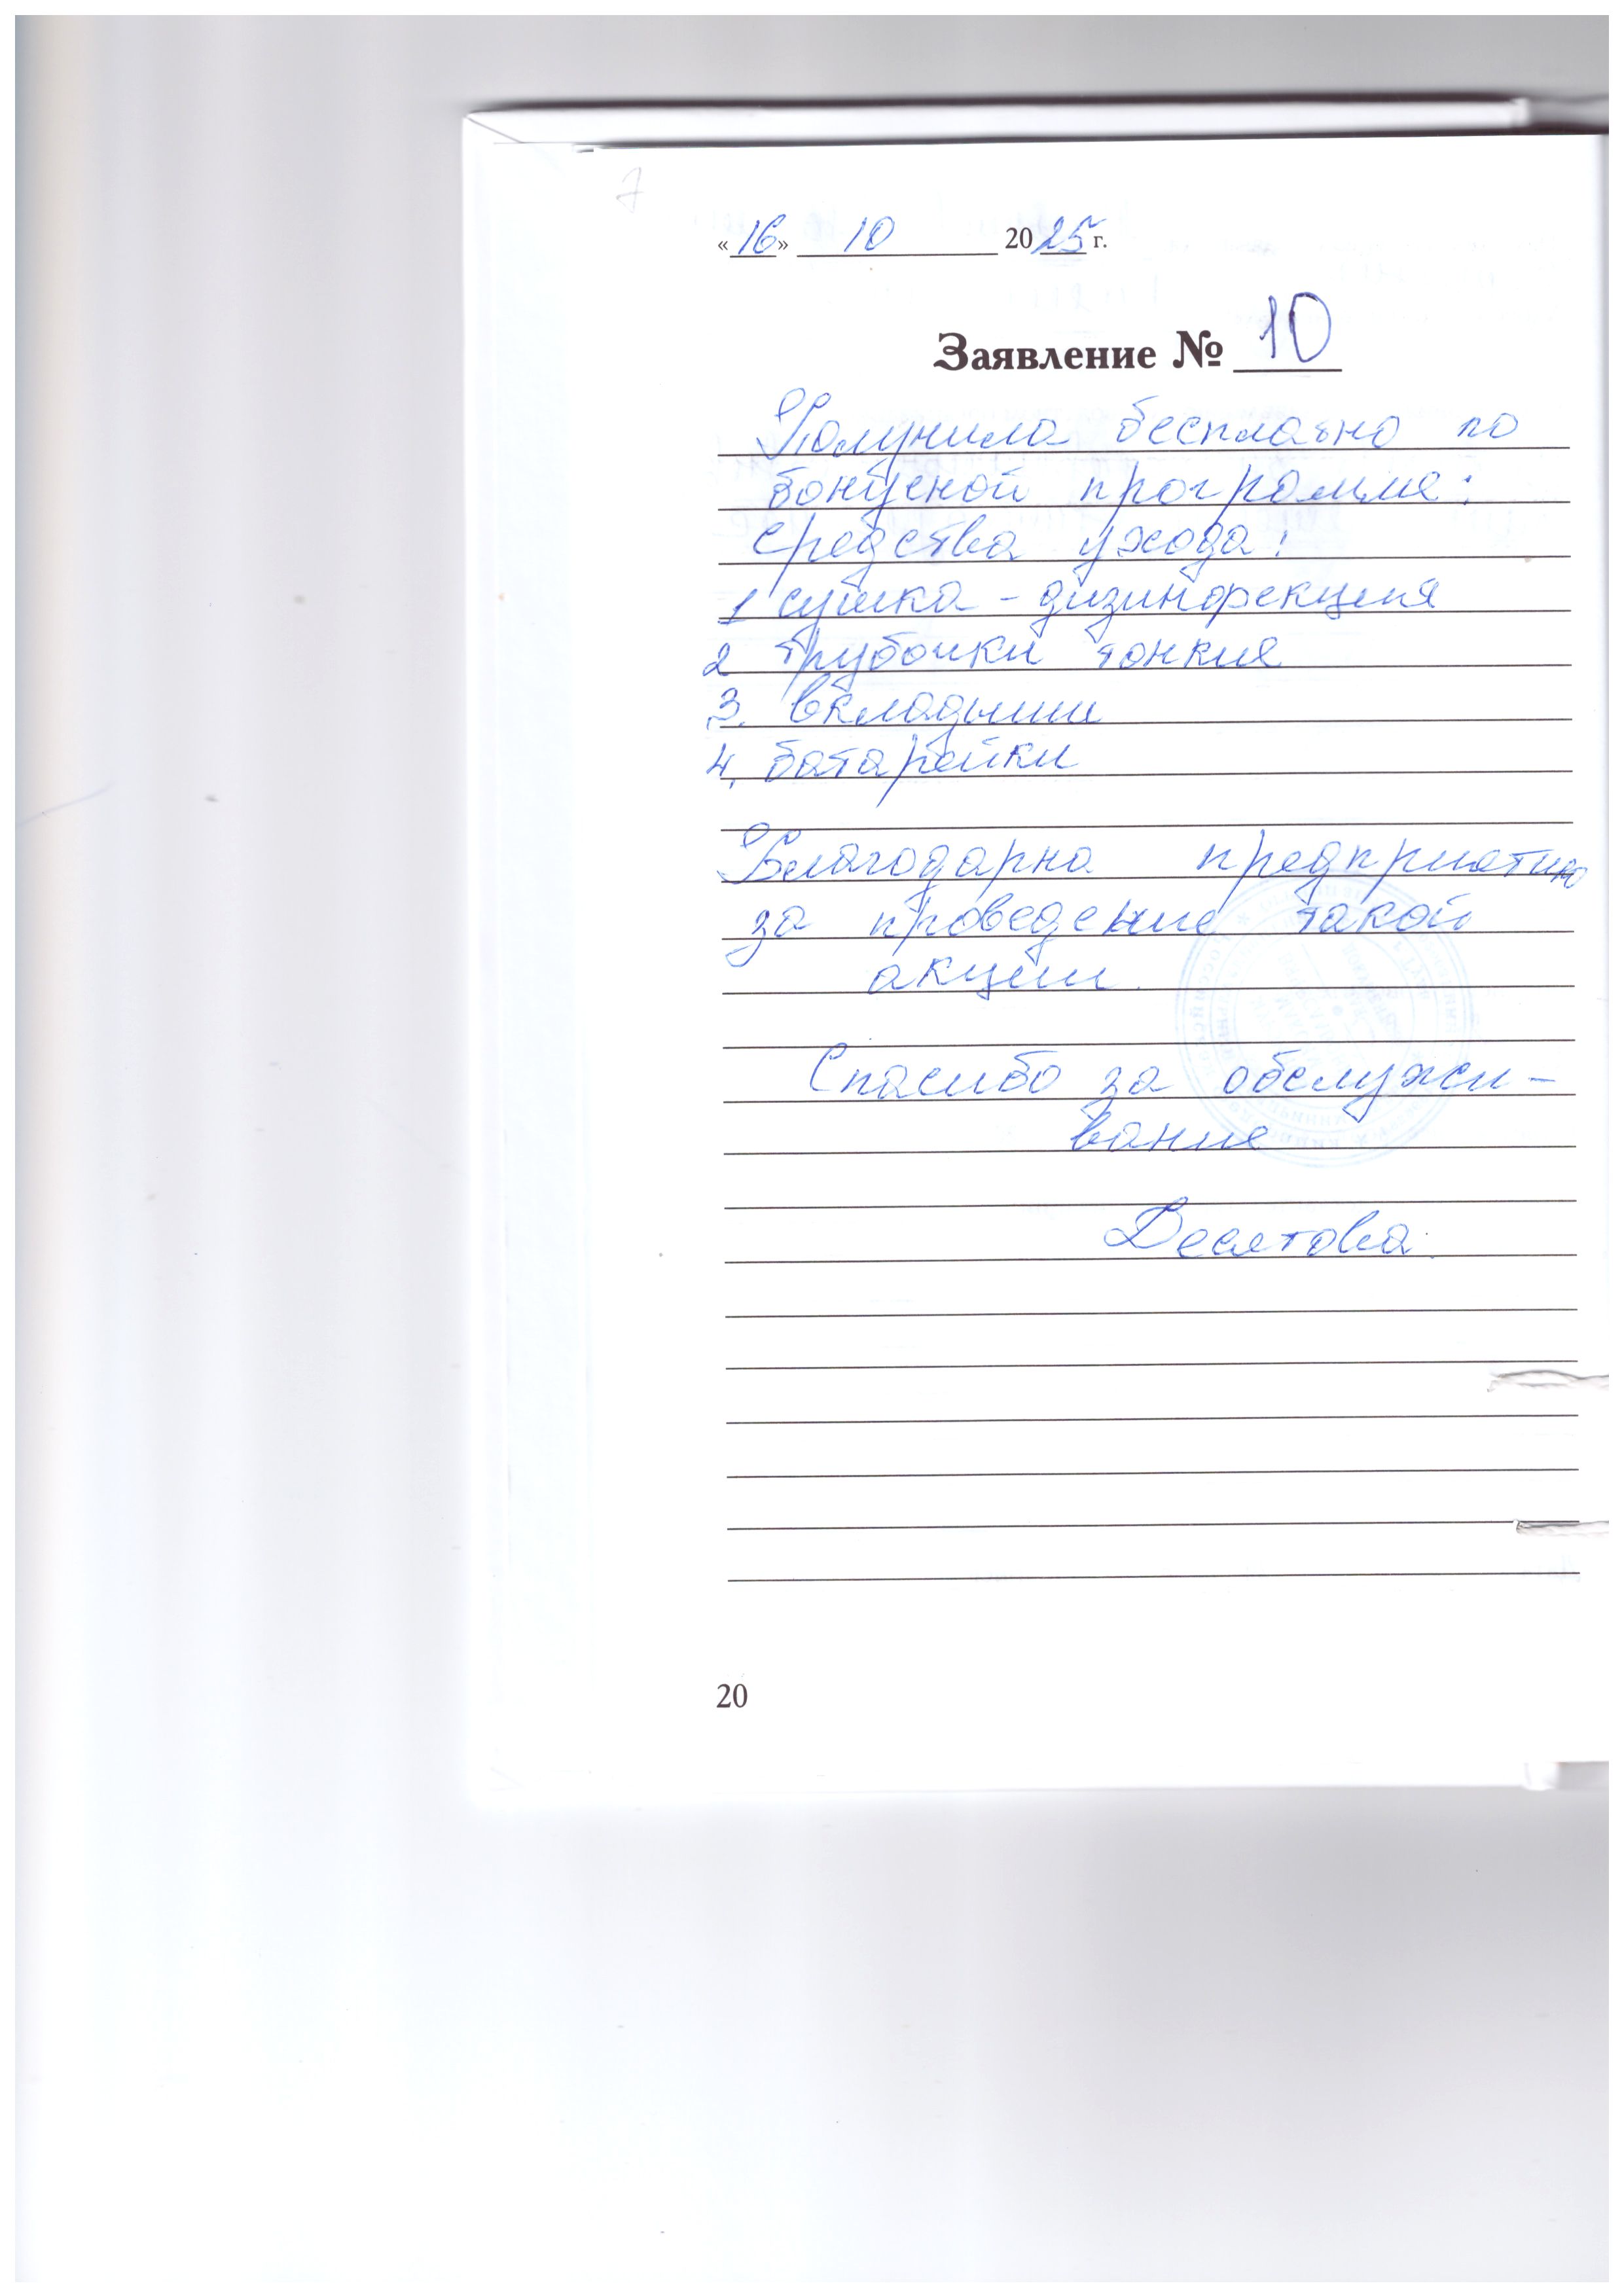 7
«16» 10 2025 г.
Заявление № 10
Получила бесплатно по
бонусной программе:
средства ухода:
1 сушка - дизинфекция
2 трубочки тонкие
3. вкладыши
4. батарейки
Благодарна предприятию
за проведение такой
акции.
Спасибо за обслужи-
вание
Десятова.
20